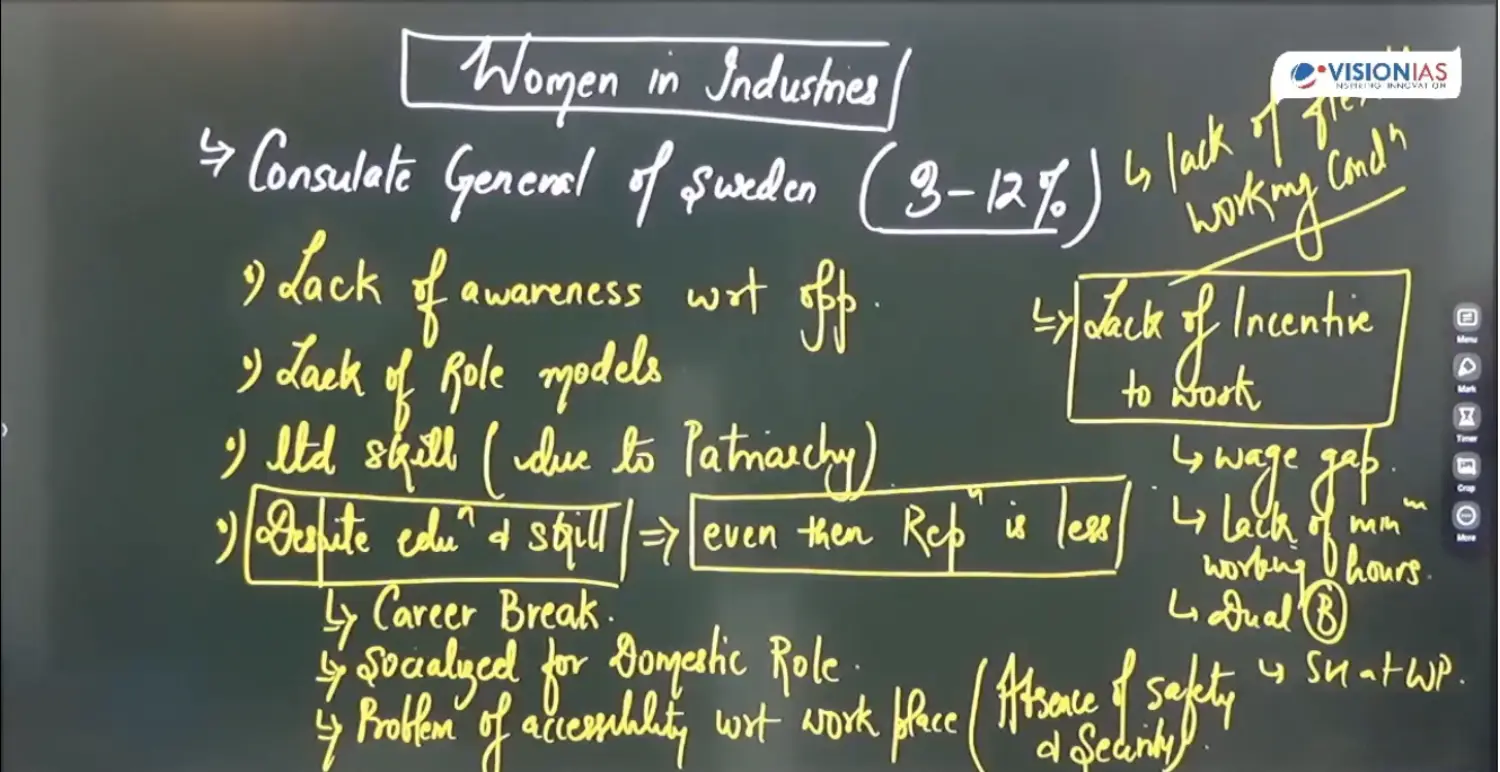 Women in Industries
VISIONIAS
INSPIRING INNOVATION
↳ Consulate General of Sweden (3-12%)
↳ lack of
working Condⁿ
•) Lack of awareness wrt opp.
•) Lack of Role models
•) ltd skill (due to Patriarchy)
•) Despite eduⁿ & skill => even then Repⁿ is less
↳ Career Break.
↳ Socialized for Domestic Role.
↳ Problem of accessibility wrt work place (Absence of safety
& Security).
↳ Lack of Incentive
to work
↳ wage gap.
↳ Lack of minᵐ
working hours.
↳ Dual B
↳ SH at WP.
Menu
Mark
Timer
Crop
More